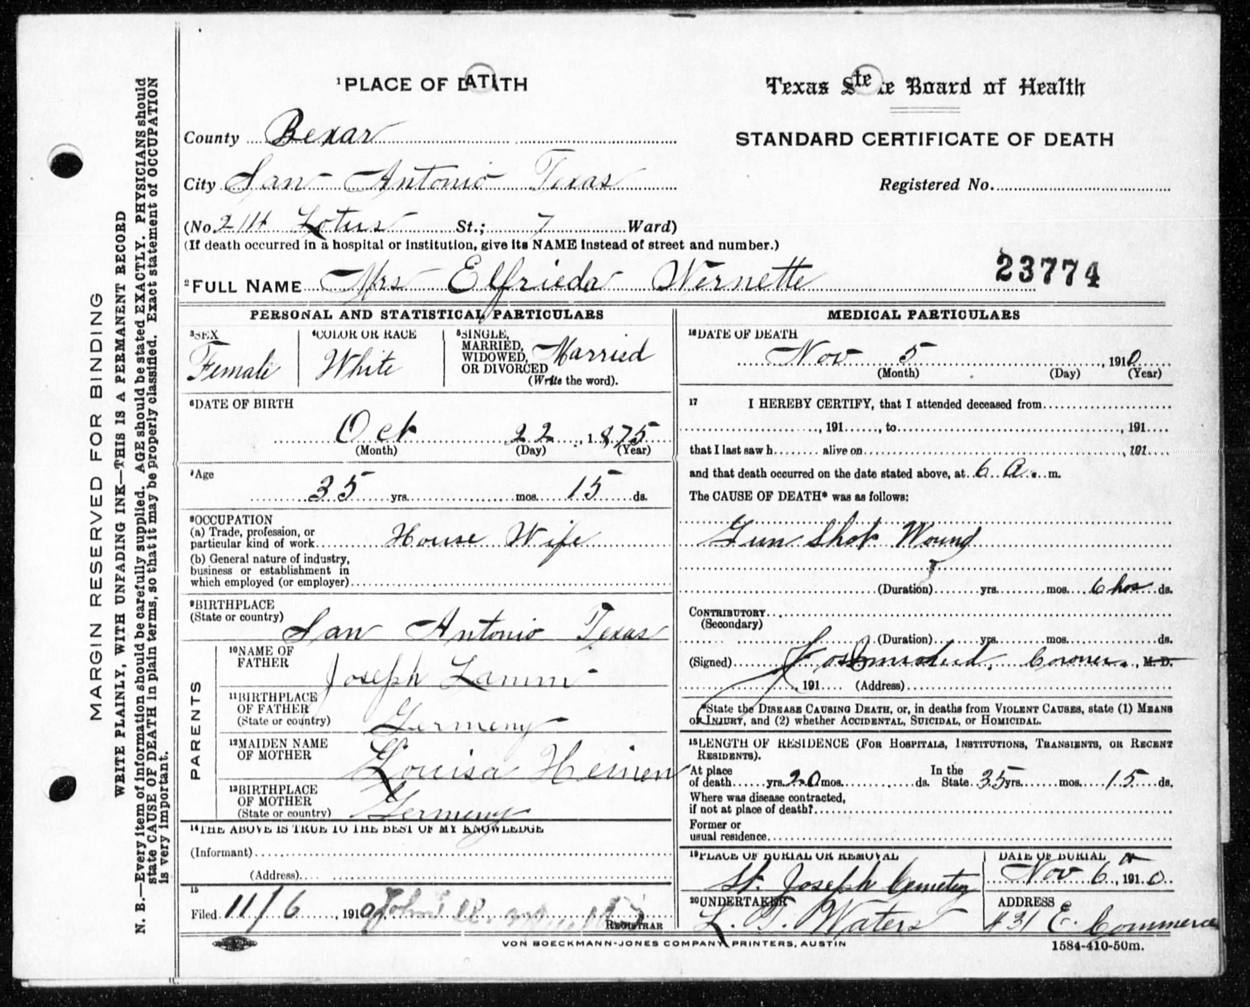 MARGIN RESERVED FOR BINDING
WRITE PLAINLY, WITH UNFADING INK—THIS IS A PERMANENT RECORD
N. B.—Every item of information should be carefully supplied. AGE should be stated EXACTLY. PHYSICIANS should
state CAUSE OF DEATH in plain terms, so that it may be properly classified. Exact statement of OCCUPATION
is very important.
1PLACE OF DEATH
County Bexar
City San Antonio Texas
(No. 214 Lotus St.; 7 Ward)
(If death occurred in a hospital or institution, give its NAME instead of street and number.)
2FULL NAME Mrs Elfrieda Wernette
Texas State Board of Health
STANDARD CERTIFICATE OF DEATH
Registered No.
23774
PERSONAL AND STATISTICAL PARTICULARS
3SEX
Female
4COLOR OR RACE
White
5SINGLE,
MARRIED,
WIDOWED,
OR DIVORCED
Married
(Write the word).
6DATE OF BIRTH
Oct 22, 1875
(Month) (Day) (Year)
7Age
35 yrs. mos. 15 ds.
8OCCUPATION
(a) Trade, profession, or
particular kind of work House Wife
(b) General nature of industry,
business or establishment in
which employed (or employer)
9BIRTHPLACE
(State or country)
San Antonio Texas
PARENTS
10NAME OF
FATHER
Joseph Lamm
11BIRTHPLACE
OF FATHER
(State or country)
Germeny
12MAIDEN NAME
OF MOTHER
Louisa Heinen
13BIRTHPLACE
OF MOTHER
(State or country)
Germeny
14THE ABOVE IS TRUE TO THE BEST OF MY KNOWLEDGE
(Informant)
(Address)
15
Filed 11/6, 1910 John
REGISTRAR
MEDICAL PARTICULARS
16DATE OF DEATH
Nov 5, 1910
(Month) (Day) (Year)
17 I HEREBY CERTIFY, that I attended deceased from
, 191 , to , 191
that I last saw h alive on , 191
and that death occurred on the date stated above, at 6 A. m.
The CAUSE OF DEATH* was as follows:
Gun Shot Wound
(Duration) yrs. mos. 6 hos ds.
CONTRIBUTORY
(Secondary)
(Duration) yrs. mos. ds.
(Signed) Coroner, M. D.
, 191 (Address)
*State the DISEASE CAUSING DEATH, or, in deaths from VIOLENT CAUSES, state (1) MEANS
OF INJURY, and (2) whether ACCIDENTAL, SUICIDAL, or HOMICIDAL.
18LENGTH OF RESIDENCE (FOR HOSPITALS, INSTITUTIONS, TRANSIENTS, OR RECENT
RESIDENTS).
At place
of death yrs. 20 mos. ds.
In the
State 35 yrs. mos. 15 ds.
Where was disease contracted,
if not at place of death?
Former or
usual residence
19PLACE OF BURIAL OR REMOVAL
St. Joseph Cemetery
DATE OF BURIAL
Nov 6, 1910
20UNDERTAKER
L. T. Waters
ADDRESS
#31 E. Commerce
VON BOECKMANN-JONES COMPANY, PRINTERS, AUSTIN
1584-410-50m.